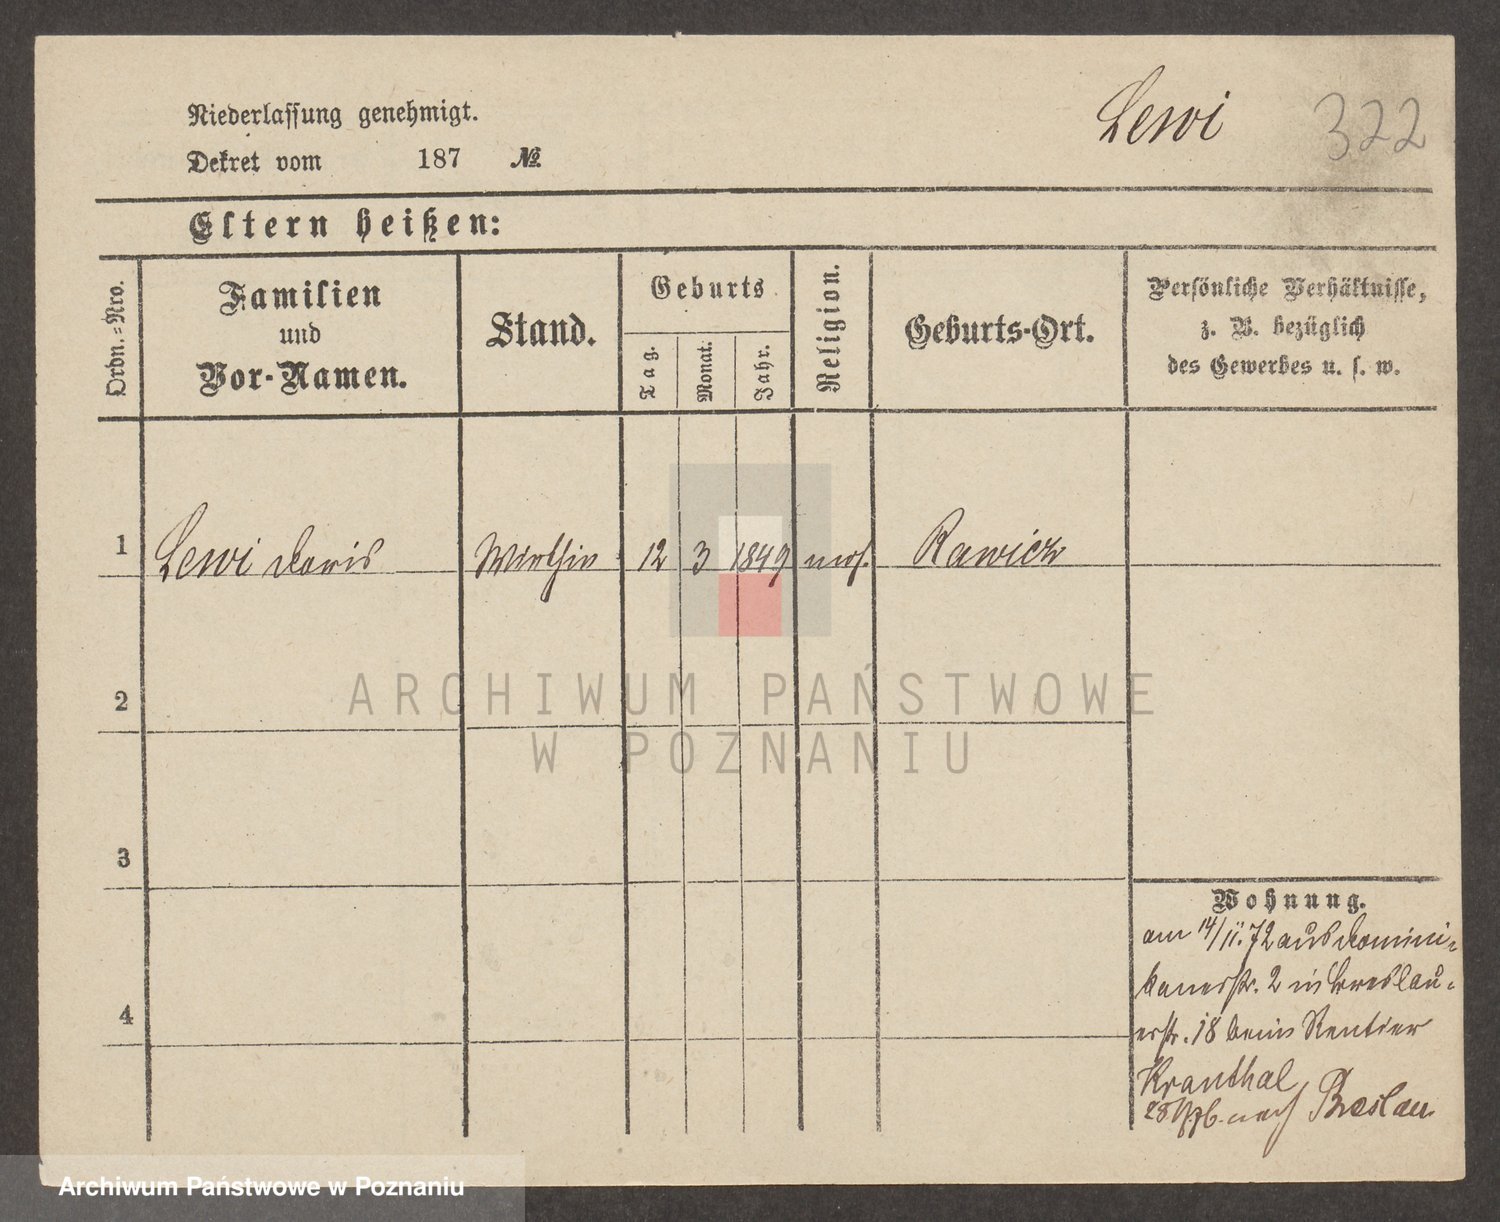 Niederlassung genehmigt.
Dekret vom 187 №
Lewi 322
Eltern heißen:
Ordn.=Nro.
Familien
und
Vor-Namen.
Stand.
Geburts
Tag.
Monat.
Jahr.
Religion.
Geburts-Ort.
Persönliche Verhältnisse,
z. B. bezüglich
des Gewerbes u. s. w.
1 Lewi Doris Wirthin 12 3 1849 mos. Rawicz
2
3
4
Wohnung.
am 14/11.72 aus Domini-
kanerstr. 2 in Breslau-
erstr. 18 beim Rentier
Kranthal
nach Breslau
ARCHIWUM PAŃSTWOWE
W POZNANIU
Archiwum Państwowe w Poznaniu